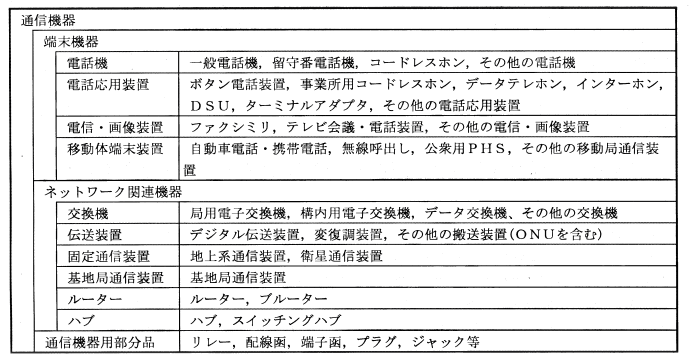 通信機器
端末機器
電話機　一般電話機，留守番電話機，コードレスホン，その他の電話機
電話応用装置　ボタン電話装置，事業所用コードレスホン，データテレホン，インターホン，
ＤＳＵ，ターミナルアダプタ，その他の電話応用装置
電信・画像装置　ファクシミリ，テレビ会議・電話装置，その他の電信・画像装置
移動体端末装置　自動車電話・携帯電話，無線呼出し，公衆用ＰＨＳ，その他の移動局通信装
置
ネットワーク関連機器
交換機　局用電子交換機，構内用電子交換機，データ交換機、その他の交換機
伝送装置　デジタル伝送装置，変復調装置，その他の搬送装置(ＯＮＵを含む)
固定通信装置　地上系通信装置，衛星通信装置
基地局通信装置　基地局通信装置
ルーター　ルーター，ブルーター
ハブ　ハブ，スイッチングハブ
通信機器用部分品　リレー，配線函，端子函，プラグ，ジャック等